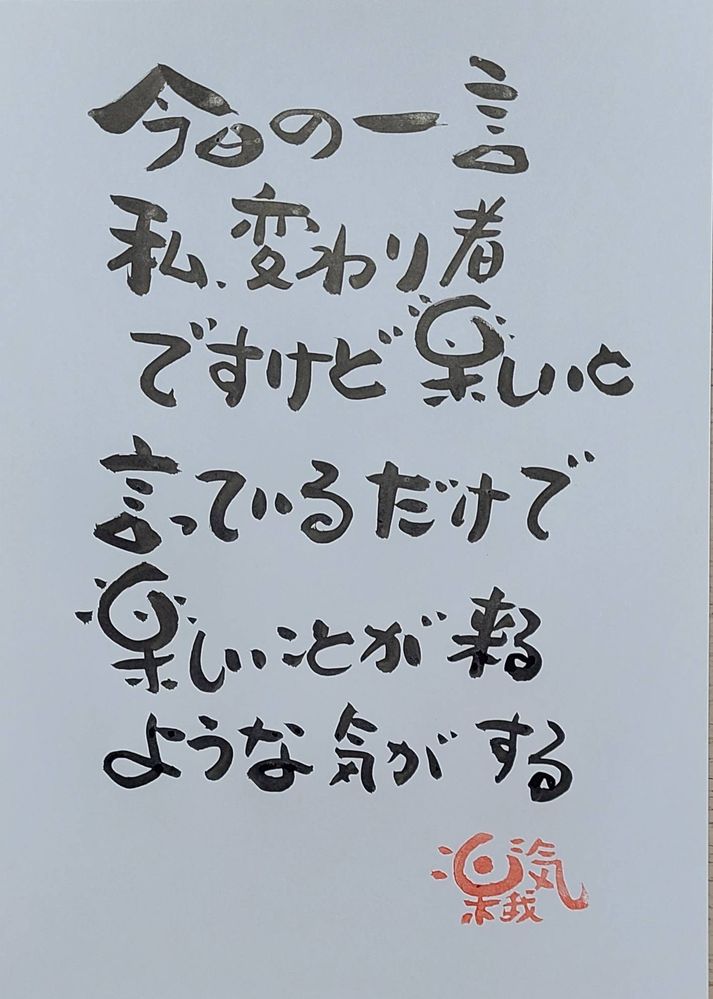 今日の一言
私、変わり者
ですけど楽しいと
言っているだけで
楽しいことが来る
ような気がする
楽気